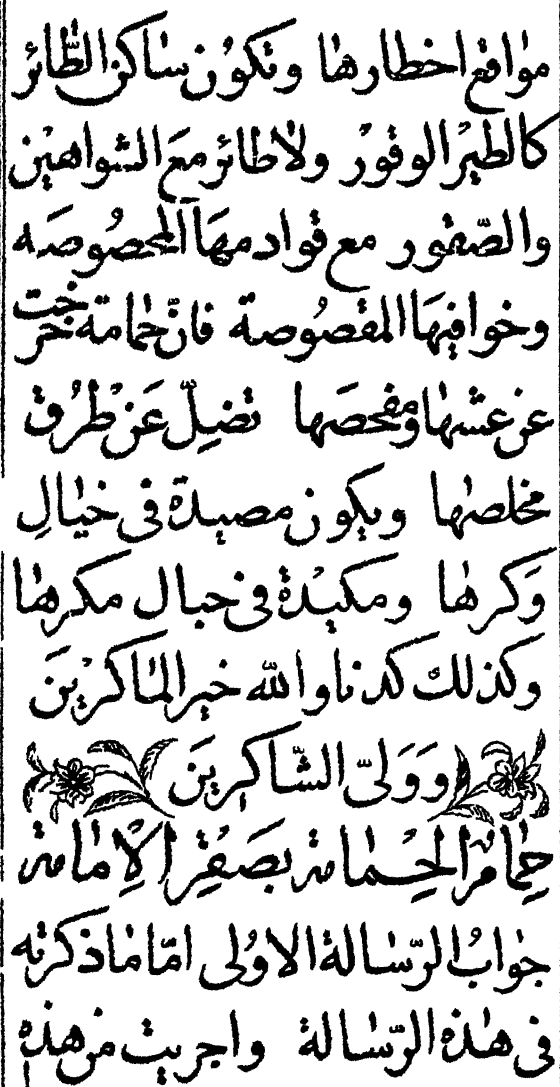 مواقع اخطارها وتكون ساكن الطّائر
كالطير الوقور ولا طائر مَعَ الشواهين
والصّقور مع قوادمهَا المحصُوصَه
وخوافيهَا المقصُوصة فانّ حمامة خرجت
عن عشّها ومفحصَها تضِلّ عَن طُرق
مخلصها ويكون مصيدة فى خيالِ
وَكرها ومكيْدة فى حبال مكرها
وكذلك كدنا والله خير الماكرينَ
ووَلىّ الشّاكرينَ
حِمامُ الحِمامة بصَقرِ الإمامة
جوابُ الرّسالة الاوُلى امّا ما ذكرته
فى هٰذه الرّسالة واجريت من هذه